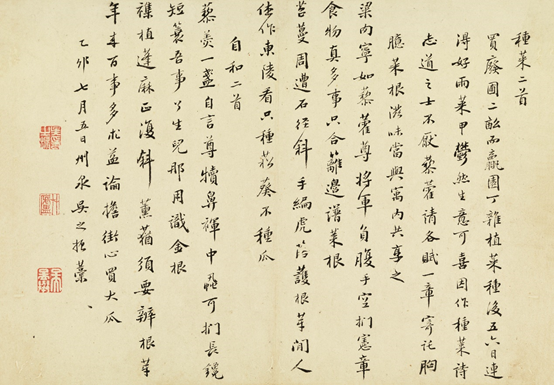 種菜二首
買廢圃二畝而羸圃丁雜植菜種後五六日連
得好雨菜甲鬱然生意可喜因作種菜詩
志道之士不厭藜藿請各賦一章寄託胸
臆菜根滋味當與寓內共享之
梁肉寧如藜藿尊將軍負腹手空捫憲章
食物真多事只合籬邊譜菜根
苔蔓周遭石徑斜手編虎落護根芽閒人
任作東陵看只種菘葵不種瓜
自和二首
藜羹一盞自言尊犢鼻褌中蝨可捫長鑱
短蓑吾事了生兒那用識金根
襍植蓬麻正復斜薰蕕須要辨根芽
年来百事多求益論擔街心買大瓜
乙卯七月五日州泉吳之振藁